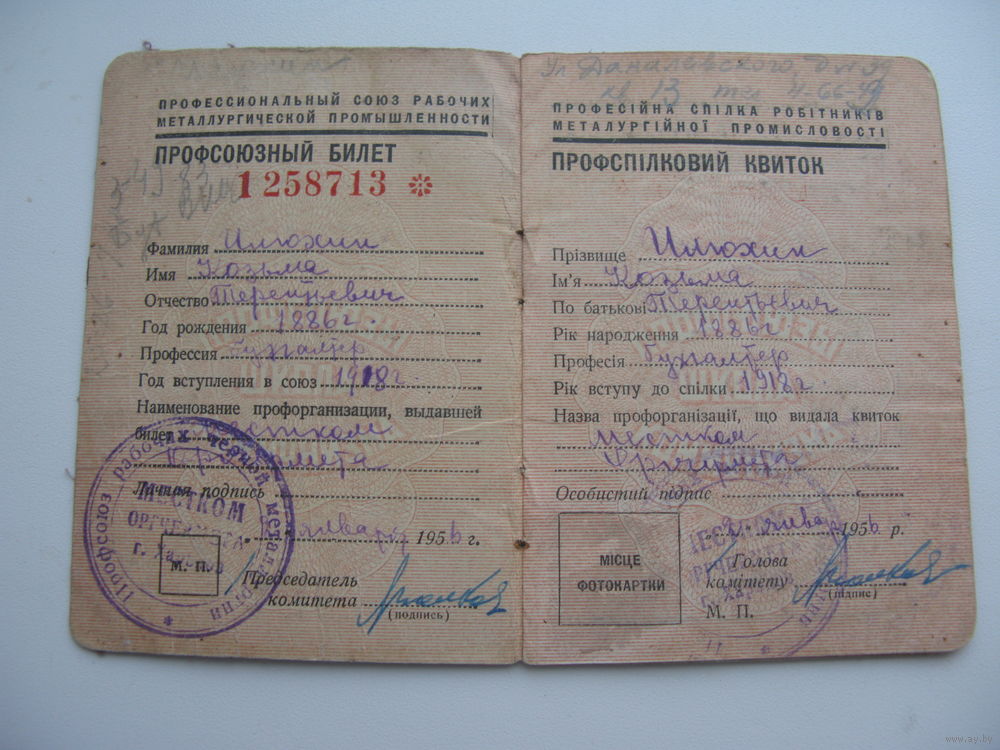 ПРОФЕССИОНАЛЬНЫЙ СОЮЗ РАБОЧИХ
МЕТАЛЛУРГИЧЕСКОЙ ПРОМЫШЛЕННОСТИ
ПРОФСОЮЗНЫЙ БИЛЕТ
1258713
Фамилия Илюхин
Имя Козьма
Отчество Терентьевич
Год рождения 1886 г.
Профессия бухгалтер
Год вступления в союз 1918 г.
Наименование профорганизации, выдавшей
билет местком
Оргчермета
Личная подпись
января 1956 г.
М. П.
Председатель
комитета
(подпись)
Профсоюз рабочих черной металлургии
МЕСТКОМ
ОРГЧЕРМЕТА
г. Харьков
Ул Данилевского д № 99
кв 13 тел 4-66-49
ПРОФЕСІЙНА СПІЛКА РОБІТНИКІВ
МЕТАЛУРГІЙНОЇ ПРОМИСЛОВОСТІ
ПРОФСПІЛКОВИЙ КВИТОК
Прізвище Илюхин
Ім'я Козьма
По батькові Терентьевич
Рік народження 1886 г
Професія бухгалтер
Рік вступу до спілки 1918 г.
Назва профорганізації, що видала квиток
местком
Оргчермета
Особистий підпис
январ 1956 р.
МІСЦЕ
ФОТОКАРТКИ
Голова
комітету
(підпис)
М. П.
www.ay.by